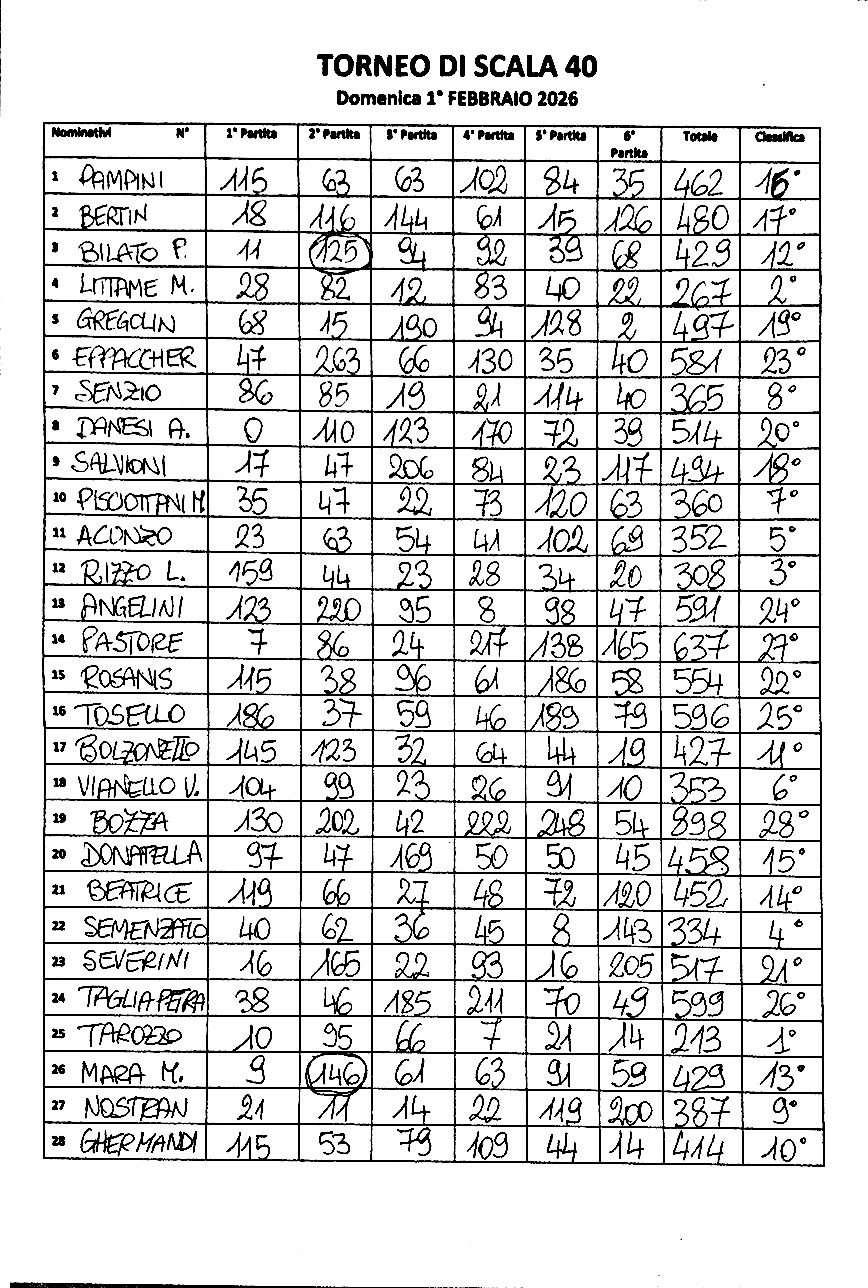 TORNEO DI SCALA 40
Domenica 1° FEBBRAIO 2026
Nominativi N° 1° Partita 2° Partita 3° Partita 4° Partita 5° Partita 6° Partita Totale Classifica
1 PAMPINI 115 63 63 102 84 35 462 16°
2 BERTIN 18 116 144 61 15 126 480 17°
3 BILATO P. 11 125 94 92 39 68 429 12°
4 LITTAME M. 28 82 12 83 40 22 267 2°
5 GREGOLIN 68 15 190 94 128 2 497 19°
6 EPPACCHER 47 263 66 130 35 40 581 23°
7 SENZIO 86 85 19 21 114 40 365 8°
8 DANESI A. 0 110 123 170 72 39 514 20°
9 SALVIONI 17 47 206 84 23 117 494 18°
10 PISCIOTTANI M 35 47 22 73 120 63 360 7°
11 ACUNZO 23 63 54 41 102 69 352 5°
12 RIZZO L. 159 44 23 28 34 20 308 3°
13 ANGELINI 123 220 95 8 98 47 591 24°
14 PASTORE 7 86 24 217 138 165 637 27°
15 ROSANIS 115 38 96 61 186 58 554 22°
16 TOSELLO 186 37 59 46 189 79 596 25°
17 BOLZONELLO 145 123 32 64 44 19 427 11°
18 VIANELLO V. 104 99 23 26 91 10 353 6°
19 BOZZA 130 202 42 222 248 54 898 28°
20 DONATELLA 97 47 169 50 50 45 458 15°
21 BEATRICE 119 66 27 48 72 120 452 14°
22 SEMENZATO 40 62 36 45 8 143 334 4°
23 SEVERINI 16 165 22 93 16 205 517 21°
24 TAGLIAPETRA 38 46 185 211 70 49 599 26°
25 TAROZZO 10 95 66 7 21 14 213 1°
26 MARA M. 9 146 61 63 91 59 429 13°
27 NOSTRAN 21 11 14 22 119 200 387 9°
28 GHERMANDI 115 53 79 109 44 14 414 10°